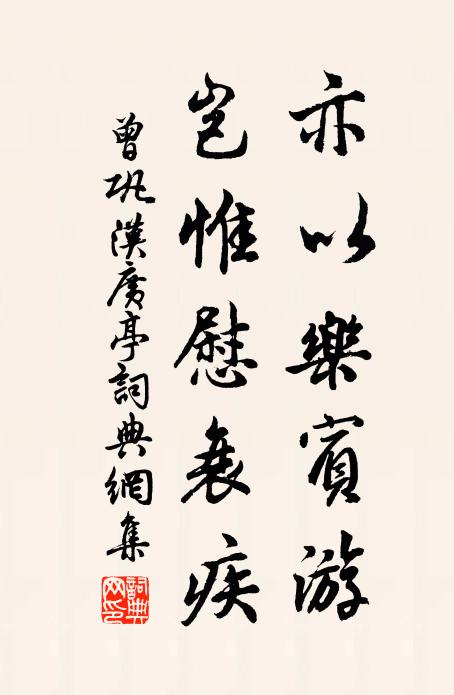 亦以樂賓游
豈惟慰衰疾
曾巩漢廣亭詞典網集
詞典网印